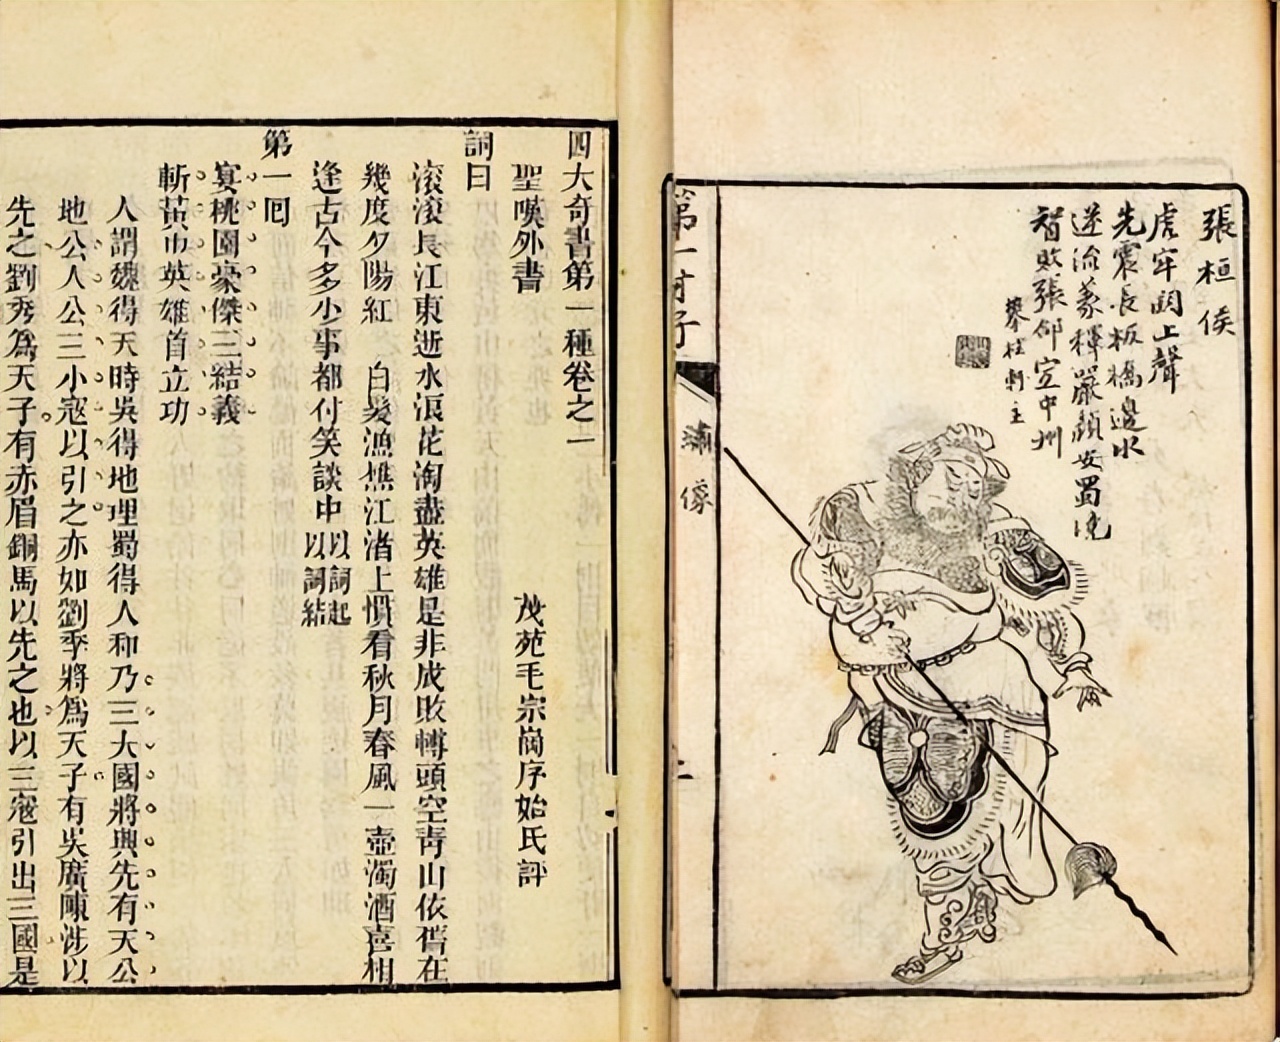 張桓侯
虎牢関上聲
先震長板橋邊水
逆流義釋嚴顏安蜀境
智敗張郃定中州
攀桂軒主
第一才子
繡像
四大奇書第一種卷之一
聖嘆外書　茂苑毛宗崗序始氏評
詞曰
滾滾長江東逝水浪花淘盡英雄是非成敗轉頭空青山依舊在
幾度夕陽紅　白髮漁樵江渚上慣看秋月春風一壺濁酒喜相
逢古今多少事都付笑談中以詞起以詞結
第一回
宴桃園豪傑三結義
斬黃巾英雄首立功
人謂魏得天時吳得地理蜀得人和乃三大國將興先有天公
地公人公三小寇以引之亦如劉季將爲天子有吳廣陳涉以
先之劉秀爲天子有赤眉銅馬以先之也以三寇引出三國是